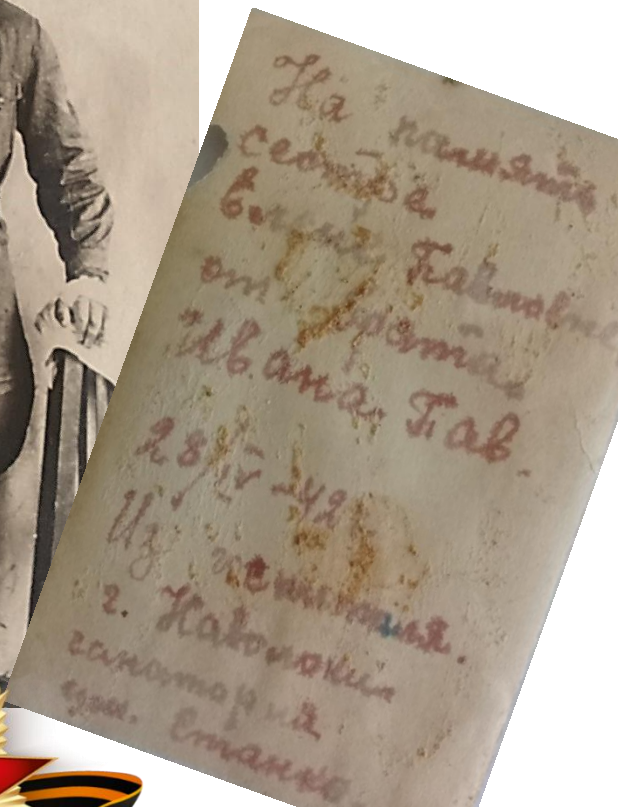 На память
сестре
Павловне
от брата
Ивана Пав.
28/IV-42
Из госпиталя.
г. Наволоки
санаторий
им. Станко